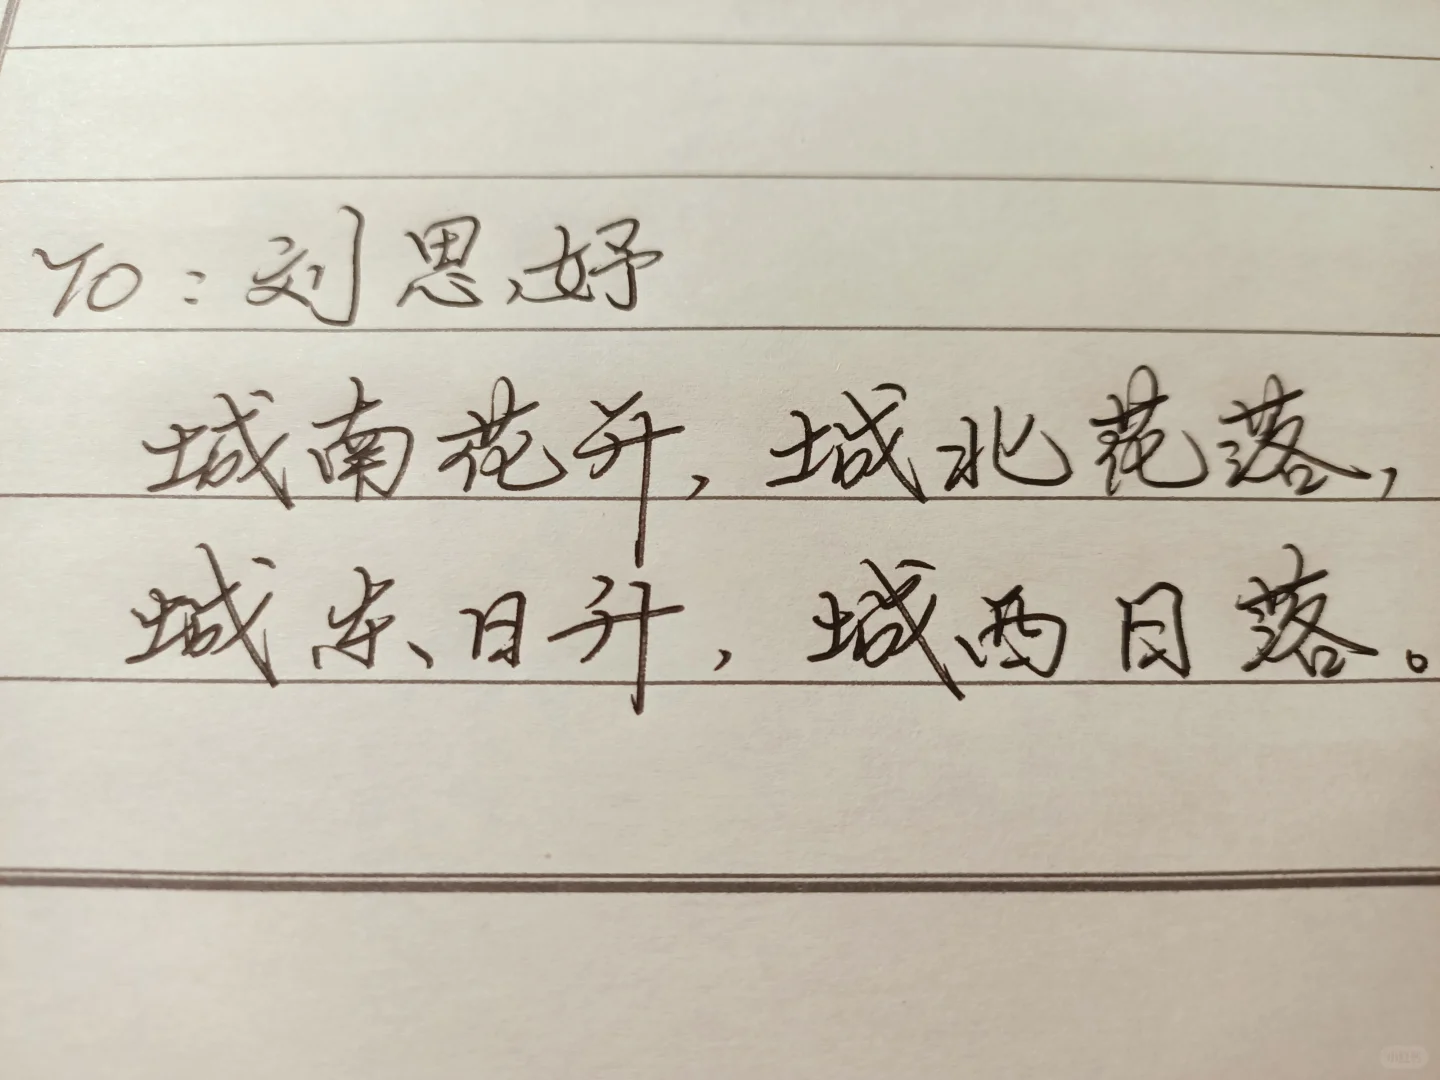 To：刘思妤
城南花开，城北花落，
城东日升，城西日落。
小红书